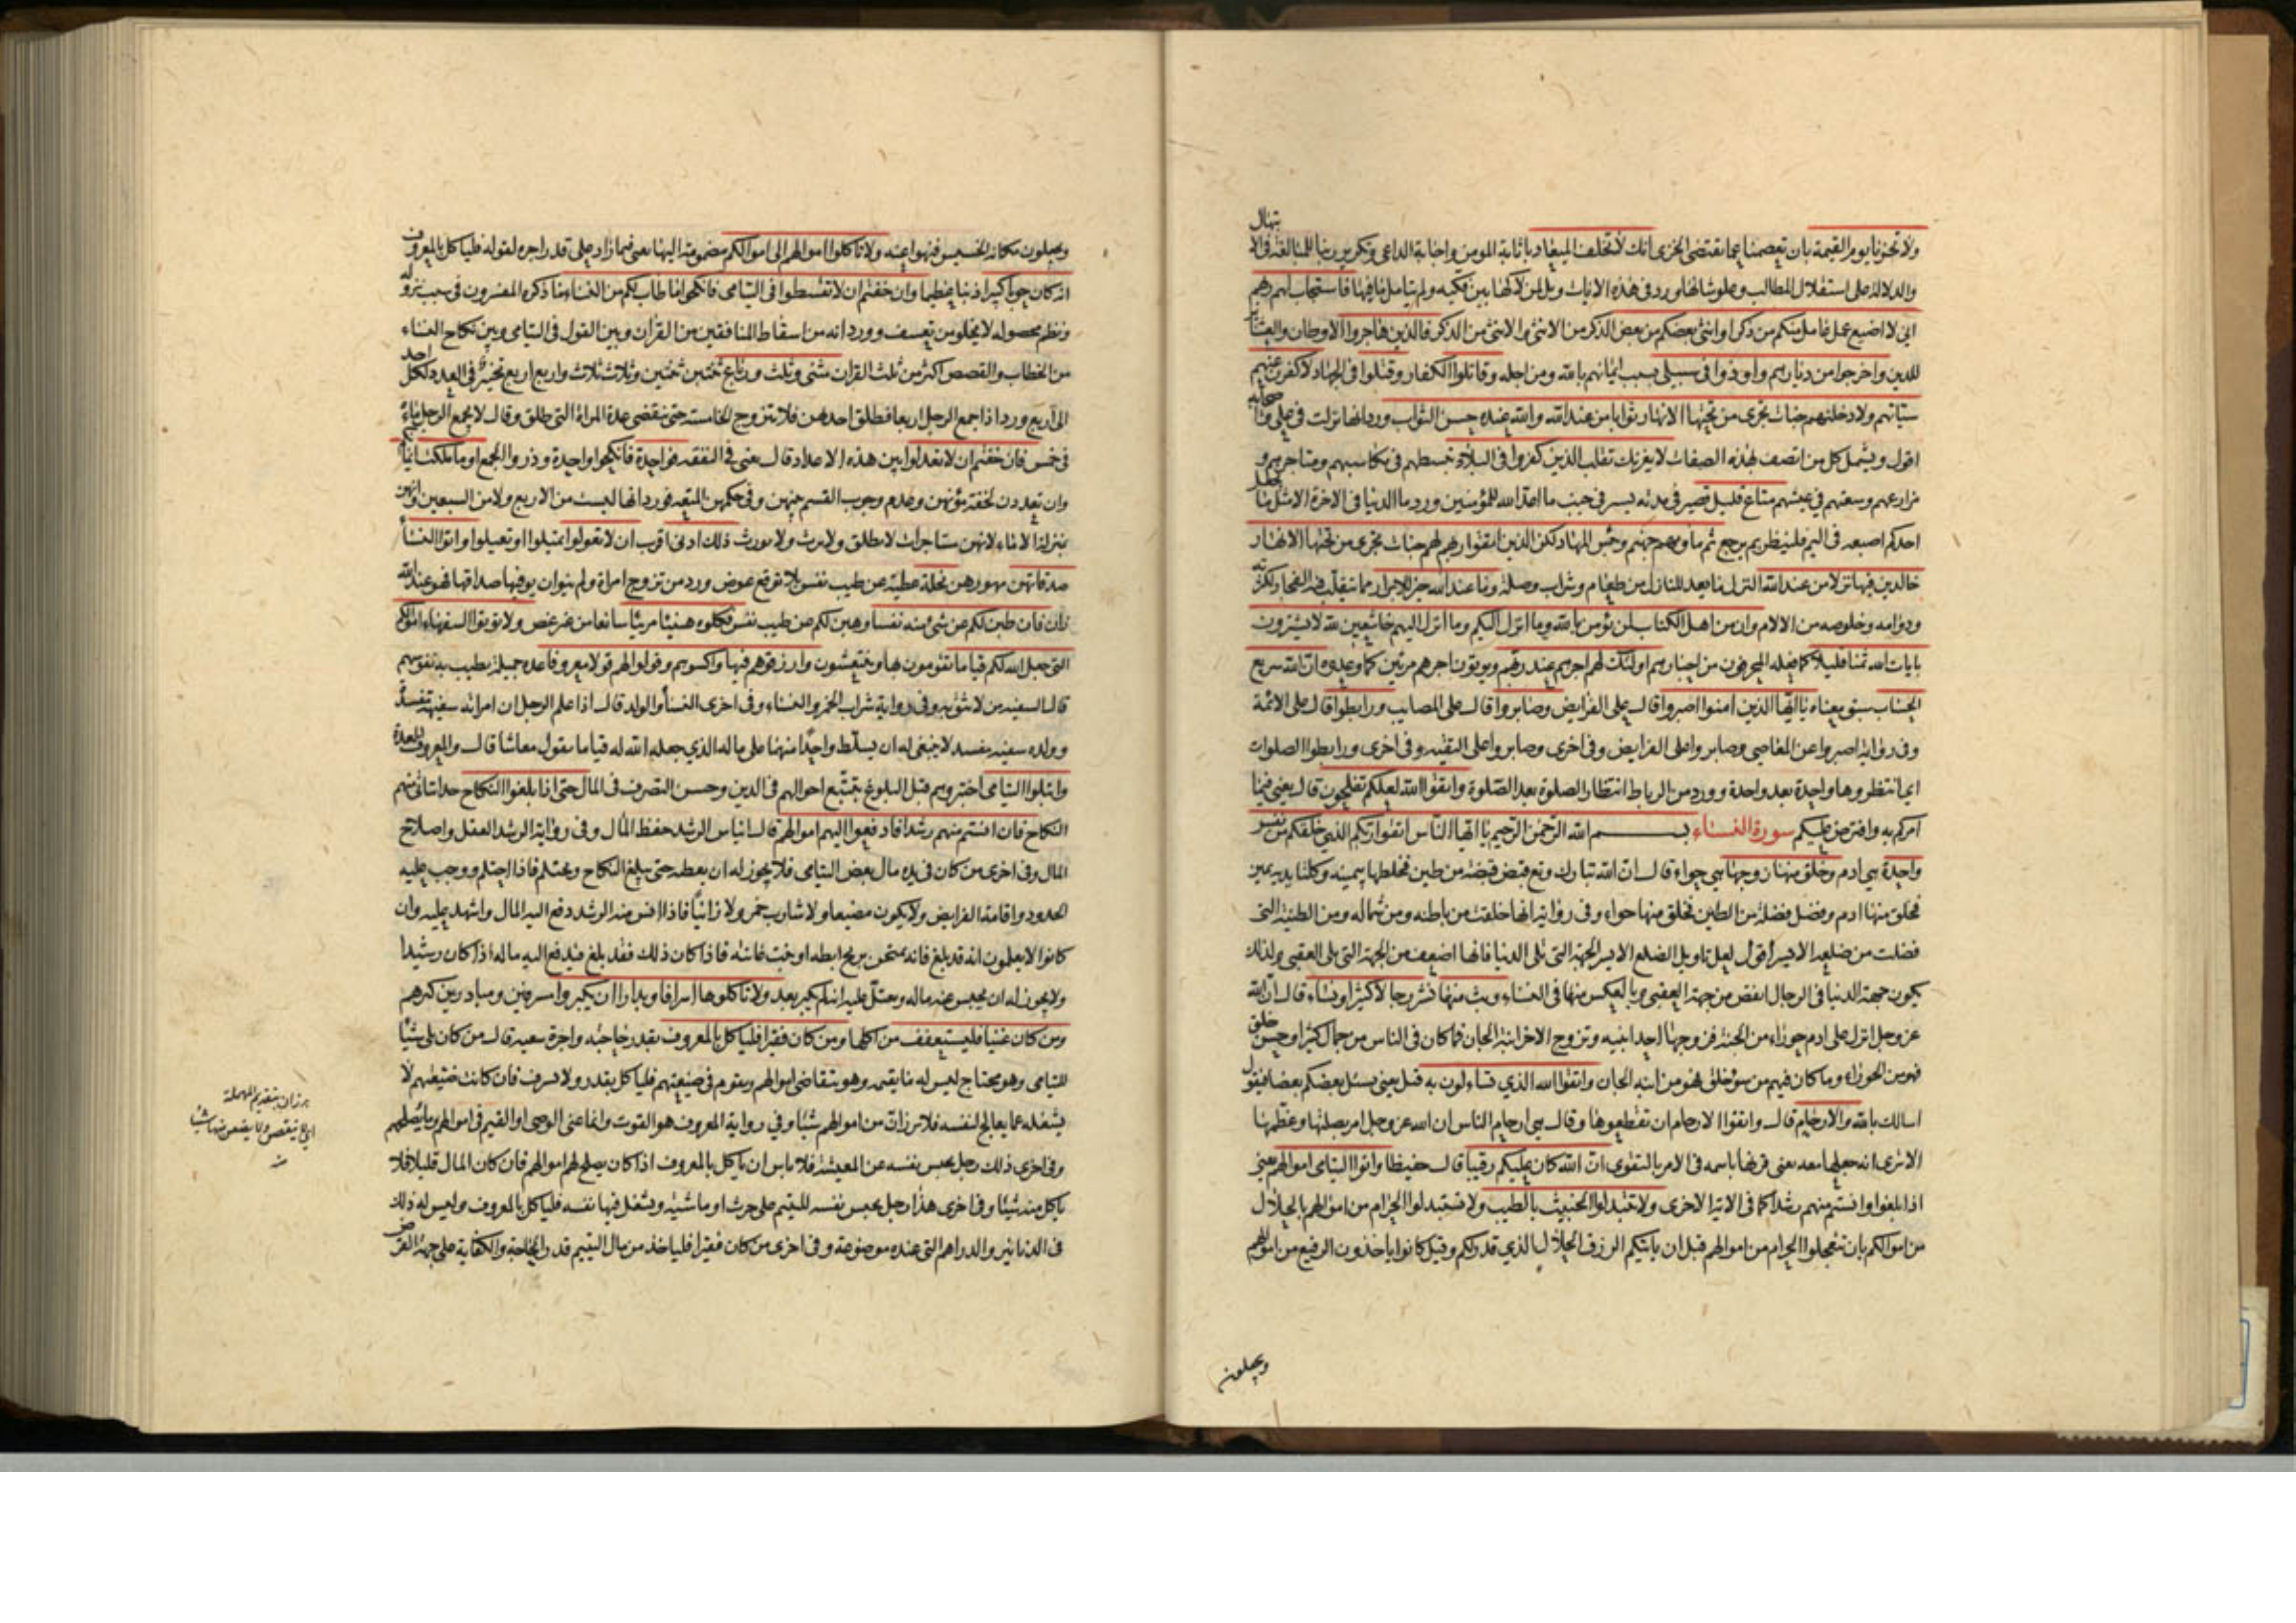 ولا تخزنا يوم القيمة بان تعصمنا عما يقتضى الخزى انك لا تخلف الميعاد باثابة المومن واجابة الداعى وتكرير ربنا للمبالغة فى الابتهال
والدلالة على استقلال المطالب وعلو شانها وورد فى هذه الايات ويل لمن لاكها بين فكيه ولم يتامل ما فيها فاستجاب لهم ربهم
انى لا اضيع عمل عامل منكم من ذكر او انثى بعضكم من بعض الذكر من الانثى والانثى من الذكر فالذين هاجروا الاوطان والعشاير
للدين واخرجوا من ديارهم واوذوا فى سبيلى بسبب ايمانهم بالله ومن اجله وقاتلوا الكفار وقتلوا فى الجهاد لاكفرن عنهم
سيئاتهم ولادخلنهم جنات تجرى من تحتها الانهار ثوابا من عند الله والله عنده حسن الثواب ورد انها نزلت فى على واصحابه
اقول ويشمل كل من اتصف بهذه الصفات لا يغرنك تقلب الذين كفروا فى البلاد تبسطهم فى مكاسبهم ومتاجرهم و
مزارعهم وسعتهم فى عيشهم متاع قليل قصير فى مدته يسير فى جنب ما اعد الله للمؤمنين وورد ما الدنيا فى الاخرة الا مثل ما يجعل
احدكم اصبعه فى اليم فلينظر بم يرجع ثم ماويهم جهنم وبئس المهاد لكن الذين اتقوا ربهم لهم جنات تجرى من تحتها الانهار
خالدين فيها نزلا من عند الله النزل ما يعد للنازل من طعام وشراب وصلة وما عند الله خير للابرار مما يتقلب فيه الفجار لكثرته
ودوامه وخلوصه من الالام وان من اهل الكتاب لمن يؤمن بالله وما انزل اليكم وما انزل اليهم خاشعين لله لا يشترون
بايات الله ثمنا قليلا كما فعله المحرفون من احبارهم اولئك لهم اجرهم عند ربهم ويؤتون اجرهم مرتين كما وعدوه ان الله سريع
الحساب سبق معناه يا ايها الذين امنوا اصبروا قال على الفرايض وصابروا قال على المصايب ورابطوا قال على الائمة
وفى رواية اصبروا عن المعاصى وصابروا على الفرايض وفى اخرى وصابروا على التقية وفى اخرى ورابطوا الصلوات
اى انتظروها واحدة بعد واحدة وورد من الرباط انتظار الصلوة بعد الصلوة واتقوا الله لعلكم تفلحون قال يعنى فيما
امركم به وافترض عليكم سورة النساء بسم الله الرحمن الرحيم يا ايها الناس اتقوا ربكم الذى خلقكم من نفس
واحدة هى ادم وخلق منها زوجها هى حواء قال ان الله تبارك وتع قبض قبضة من طين فخلطها بيمينه وكلتا يديه يمين
فخلق منها ادم وفضل فضلة من الطين فخلق منها حواء وفى رواية انها خلقت من باطنه ومن شماله ومن الطينة التى
فضلت من ضلعه الايسر اقول لعل تاويل الضلع الايسر الجهة التى تلى الدنيا فانها اضعف من الجهة التى تلى العقبى ولذلك
يكون جهة الدنيا فى الرجال انقص من جهة العقبى وبالعكس منها فى النساء وبث منهما نشر رجالا كثيرا ونساء قال ان الله
عز وجل انزل على ادم حوراء من الجنة فزوجها احد ابنيه وتزوج الاخر ابنة الجان فما كان فى الناس من جمال كثير او حسن خلق
فهو من الحوراء وما كان فيهم من سوء خلق فهو من ابنة الجان واتقوا الله الذى تساءلون به قيل يعنى يسئل بعضكم بعضا فيقول
اسالك بالله والارحام قال واتقوا الارحام ان تقطعوها وقال هى ارحام الناس ان الله عز وجل امر بصلتها وعظمها
الا ترى انه جعلها معه يعنى قرنها باسمه فى الامر بالتقوى ان الله كان عليكم رقيبا قال حفيظا واتوا اليتامى اموالهم يعنى
اذا بلغوا وانستم منهم رشدا كما فى الاية الاخرى ولا تتبدلوا الخبيث بالطيب ولا تستبدلوا الحرام من اموالهم بالحلال
من اموالكم بان تتعجلوا الحرام من اموالهم قبل ان ياتيكم الرزق الحلال الذى قدر لكم وقيل كانوا ياخذون الرفيع من اموالهم
ويجعلون
ويجعلون مكانه الخسيس فنهوا عنه ولا تاكلوا اموالهم الى اموالكم مضمومة اليها يعنى فيما زاد على قدر اجره لقوله فلياكل بالمعروف
انه كان حوبا كبيرا ذنبا عظيما وان خفتم ان لا تقسطوا فى اليتامى فانكحوا ما طاب لكم من النساء ما ذكره المفسرون فى سبب نزوله
ونظم محصوله لا يخلو من تعسف وورد انه من اسقاط المنافقين من القران وبين القول فى اليتامى وبين نكاح النساء
من الخطاب والقصص اكثر من ثلث القران مثنى وثلث ورباع ثنتين ثنتين وثلاث ثلاث واربع اربع تخير فى العدد لكل احد
الى اربع ورد اذا جمع الرجل اربعا فطلق احدهن فلا تتزوج الخامسة حتى تنقضى عدة المراة التى طلق وقال لا يجمع الرجل ماءه
فى خمس فان خفتم ان لا تعدلوا بين هذه الاعداد قال يعنى فى النفقة فواحدة فانكحوا واحدة وذروا الجمع او ما ملكت ايمانكم
وان تعددن لخفة مؤنهن وعدم وجوب القسم بينهن وفى حكمهن المتعة فورد انها ليست من الاربع ولا من السبعين وانهن
بمنزلة الاماء لانهن مستاجرات لا تطلق ولا ترث ولا تورث ذلك ادنى اقرب ان لا تعولوا تميلوا او تعيلوا واتوا النساء
صدقاتهن مهورهن نحلة عطية عن طيب نفس بلا توقع عوض ورد من تزوج امراة ولم ينو ان يوفيها صداقها فهو عند الله
زان فان طبن لكم عن شئ منه نفسا وهبن لكم عن طيب نفس فكلوه هنيئا مريئا سائغا من غير غص ولا تؤتوا السفهاء اموالكم
التى جعل الله لكم قياما تقومون بها وتنتعشون وارزقوهم فيها واكسوهم وقولوا لهم قولا معروفا عدة جميلة تطيب به نفوسهم
قال السفيه من لا تثق به وفى رواية شراب الخمر والنساء وفى اخرى النساء والولد قال اذا علم الرجل ان امراته سفيهة مفسدة
وولده سفيه مفسد لا ينبغى له ان يسلط واحدا منهما على ماله الذى جعله الله له قياما يقول معاشا قال والمعروف العدة
وابتلوا اليتامى اختبروهم قبل البلوغ بتتبع احوالهم فى الدين وحسن التصرف فى المال حتى اذا بلغوا النكاح حدا يتاتى منهم
النكاح فان انستم منهم رشدا فادفعوا اليهم اموالهم قال ايناس الرشد حفظ المال وفى رواية الرشد العقل واصلاح
المال وفى اخرى من كان فى يده مال بعض اليتامى فلا يجوز له ان يعطيه حتى يبلغ النكاح ويحتلم فاذا احتلم ووجب عليه
الحدود واقامة الفرايض ولا يكون مضيعا ولا شارب خمر ولا زانيا فاذا انس منه الرشد دفع اليه المال واشهد عليه وان
كانوا لا يعلمون انه قد بلغ فانه يمتحن بريح ابطه او نبت عانته فاذا كان ذلك فقد بلغ فيدفع اليه ماله اذا كان رشيدا
ولا يجوز له ان يحبس عنه ماله ويعتل عليه انه لم يكبر بعد ولا تاكلوها اسرافا وبدارا ان يكبروا مسرفين ومبادرين كبرهم
ومن كان غنيا فليستعفف من اكلها ومن كان فقيرا فلياكل بالمعروف بقدر حاجته واجرة سعيه قال من كان يلى شيئا
لليتامى وهو محتاج ليس له ما يقيمه وهو يتقاضى اموالهم ويقوم فى ضيعتهم فلياكل بقدر ولا يسرف فان كانت ضيعتهم لا
يشغله عما يعالج لنفسه فلا يرزان من اموالهم شيئا وفى رواية المعروف هو القوت وانما عنى الوصى او القيم فى اموالهم وما يصلحهم
وفى اخرى ذلك رجل يحبس نفسه عن المعيشة فلا باس ان ياكل بالمعروف اذا كان يصلح لهم اموالهم فان كان المال قليلا فلا
ياكل منه شيئا وفى اخرى هذا رجل يحبس نفسه لليتيم على حرث او ماشية ويشغل فيها نفسه فلياكل بالمعروف وليس له ذلك
فى الدنانير والدراهم التى عنده موضوعة وفى اخرى من كان فقيرا فلياخذ من مال اليتيم قدر الحاجة والكفاية على جهة القرض
يرزان بتقديم المهملة
اى لا ينقص ولا